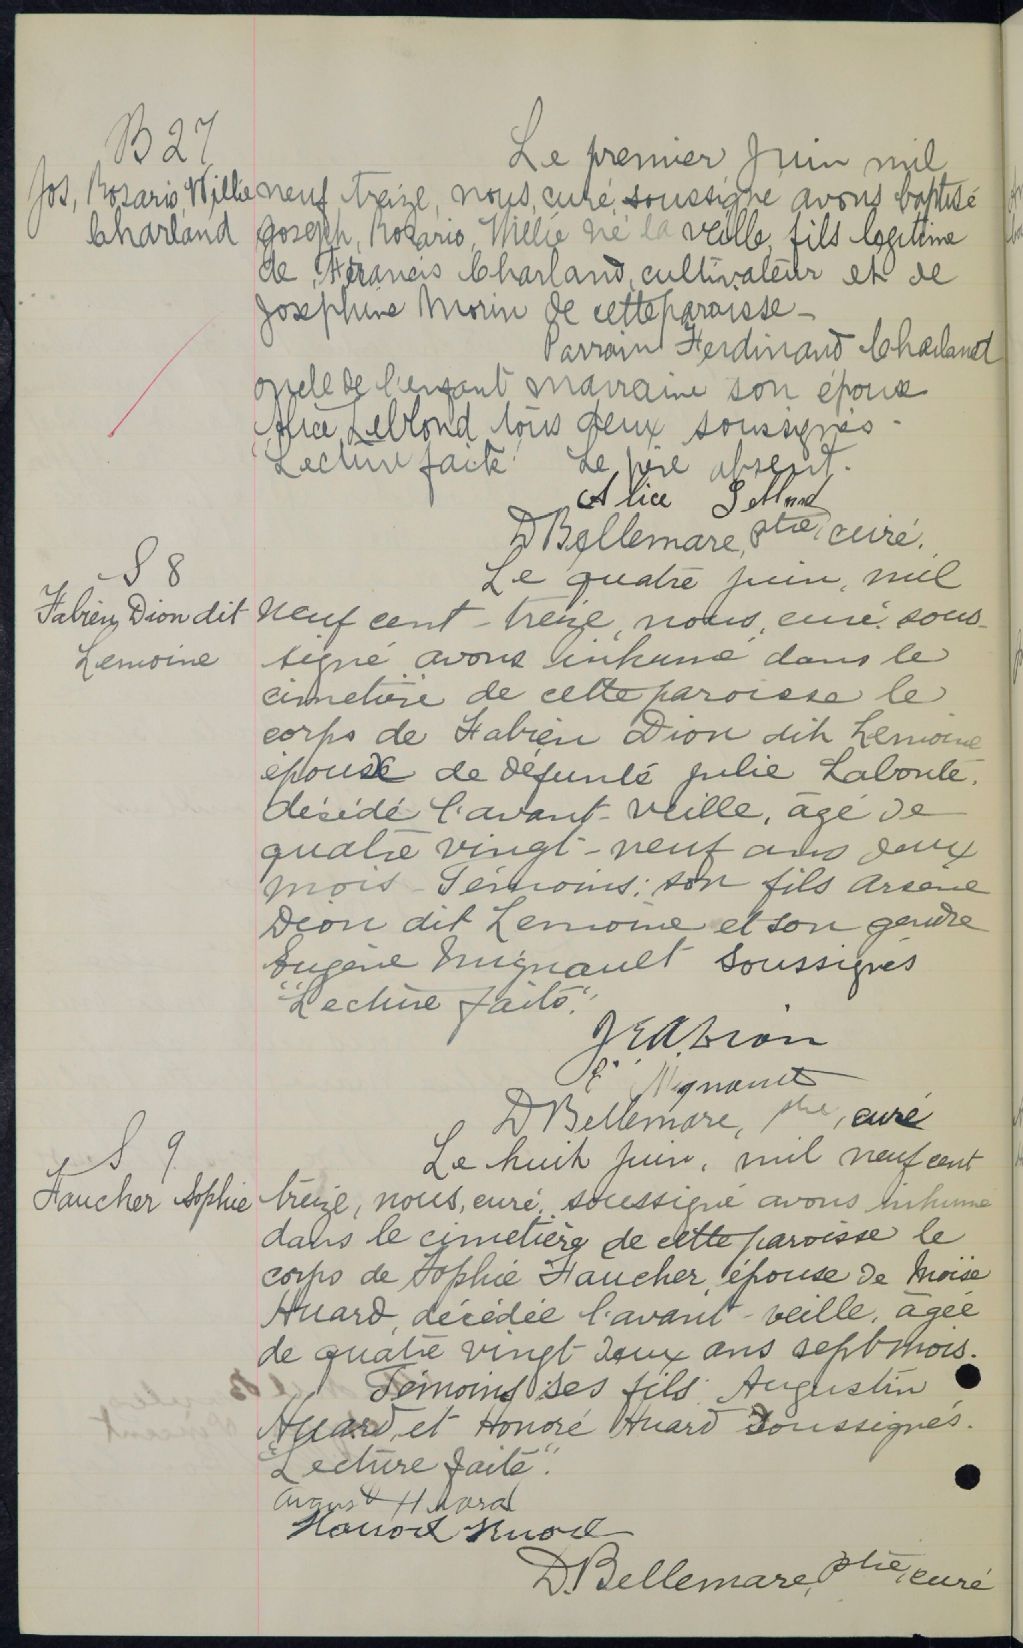 B 27
Jos, Rosario, Willie
Charland
Le premier Juin mil
neuf treize, nous, curé soussigné avons baptisé
Joseph, Rosario, Willie né la veille, fils légitime
de Francis Charland, cultivateur et de
Josephine Morin de cette paroisse -
Parrain Ferdinand Charland
oncle de l'enfant marraine son épouse
Alice Leblond tous deux soussignés -
"Lecture faite" Le père absent.
Alice Leblond
D Bellemare, ptre, curé.
S 8
Fabien Dion dit
Lemoine
Le quatre juin, mil
neuf cent - treize, nous, curé, sous-
signé avons inhumé dans le
cimetière de cette paroisse le
corps de Fabien Dion dit Lemoine
époux de défunte Julie Labonté,
décédé l'avant-veille, âgé de
quatre vingt-neuf ans deux
mois - Témoins: son fils Arsène
Dion dit Lemoine et son gendre
Eugène Mignault soussignés
"Lecture faite".
J E A Dion
E Mignault
D Bellemare, ptre, curé
S 9
Faucher Sophie
Le huit juin, mil neuf cent
treize, nous, curé, soussigné avons inhumé
dans le cimetière de cette paroisse le
corps de Sophie Faucher, épouse de Moïse
Huard, décédée l'avant-veille, âgée
de quatre vingt-deux ans sept mois.
Témoins ses fils Augustin
Huard, et Honoré Huard soussignés.
"Lecture faite".
August Huard
Honoré Huard
D. Bellemare, ptre, curé